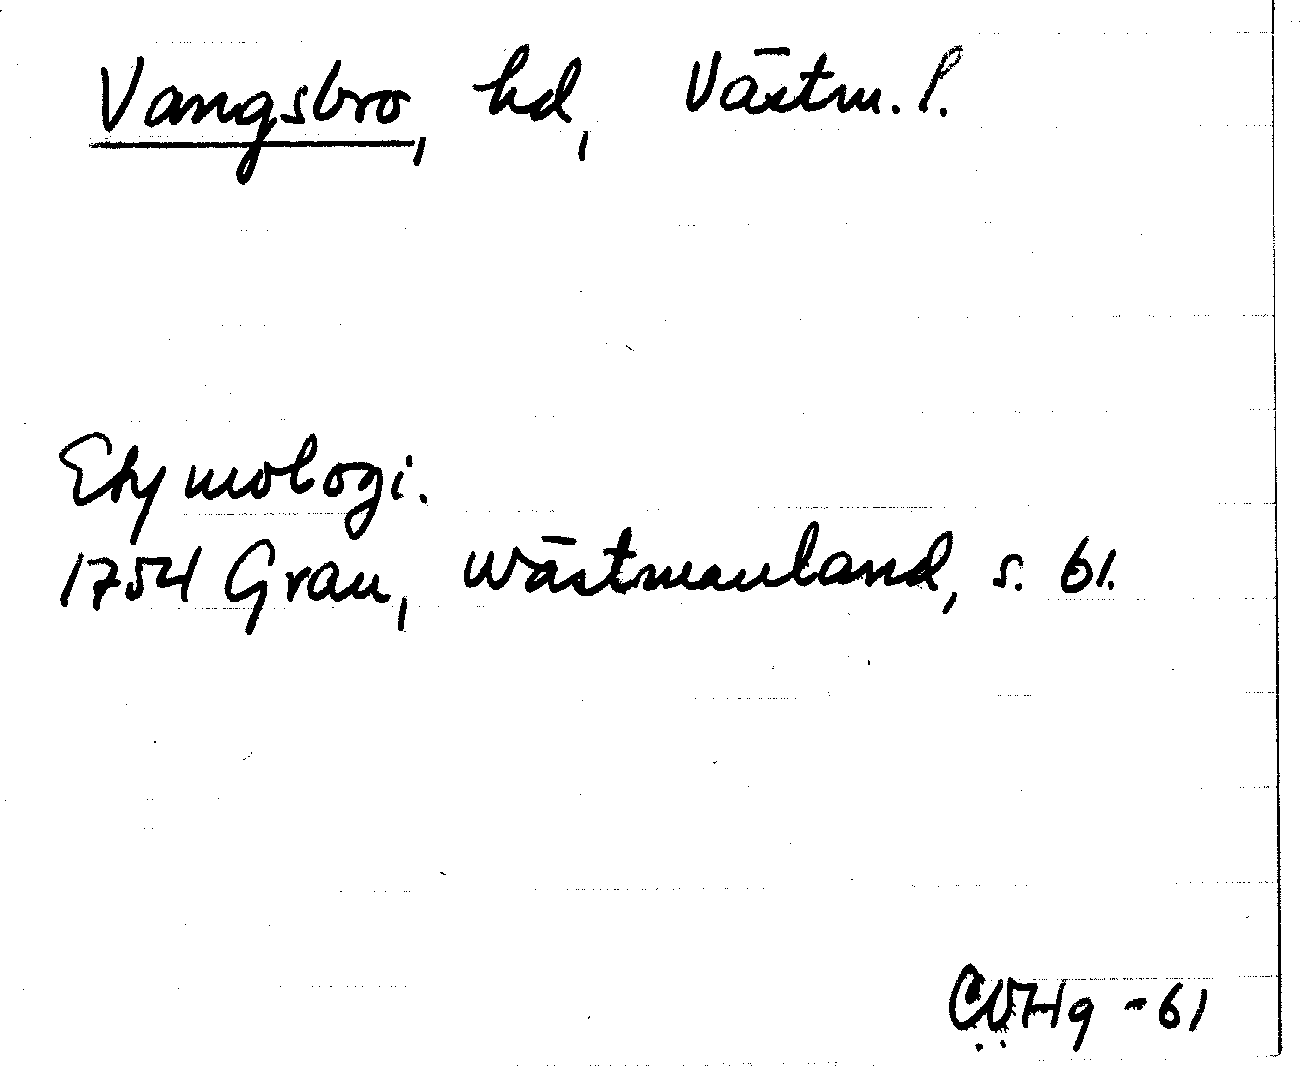 Vangsbro, hd, Västm. l.
Etymologi.
1754 Grau, Wästmanland, s. 61.
CWHg -61